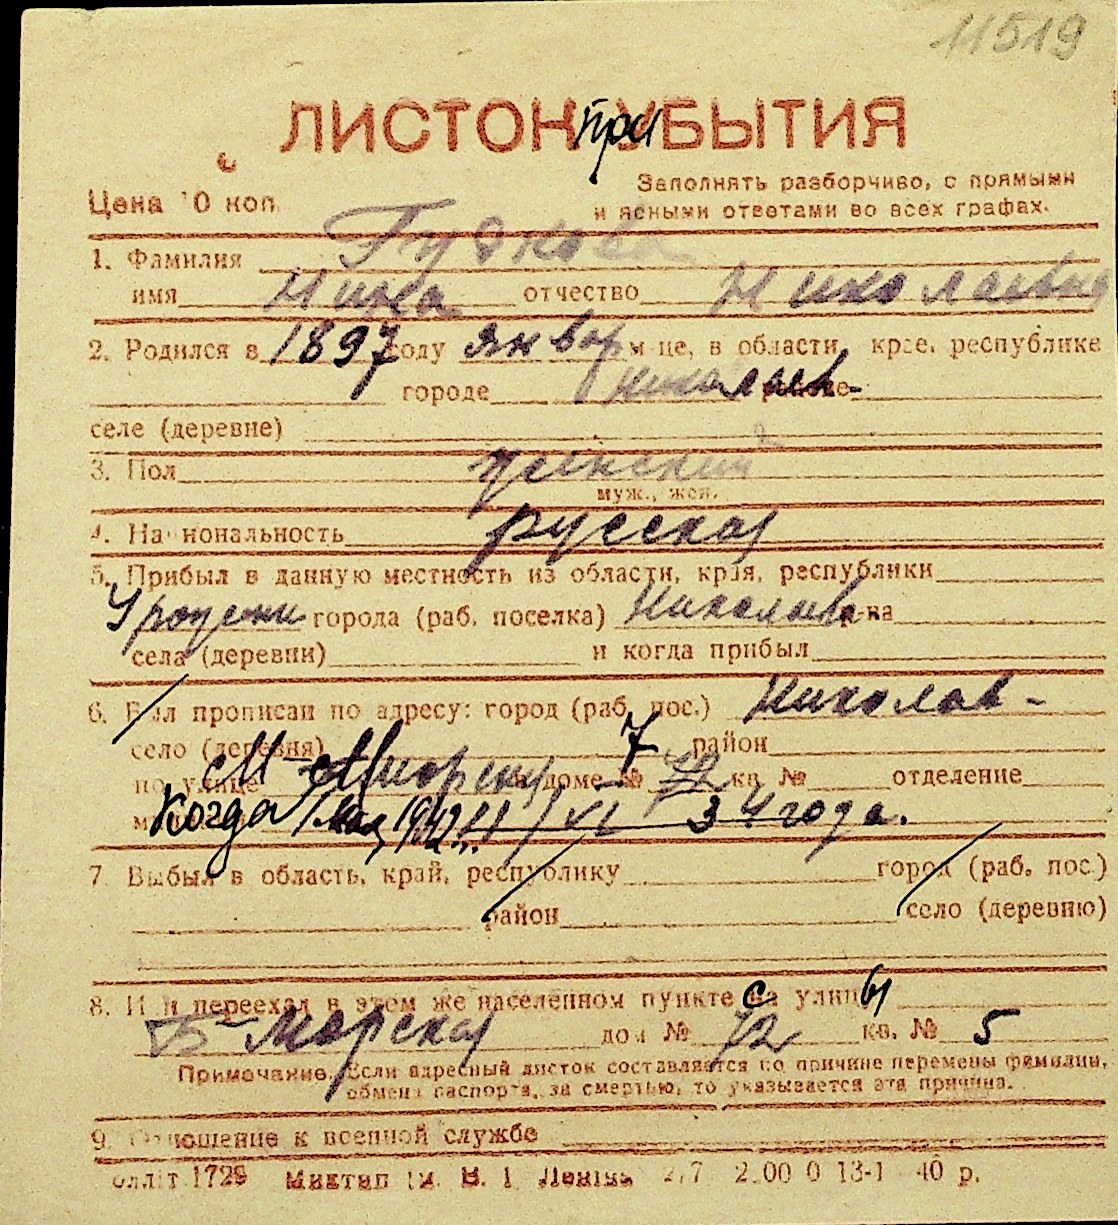 11519
ЛИСТОК при УБЫТИЯ
Цена 10 коп.
Заполнять разборчиво, с прямыми
и ясными ответами во всех графах.
1. Фамилия Гудкова
имя Нина отчество Николаевна
2. Родился в 1897 году январ м-це, в области, крае, республике
городе Николаев районе
селе (деревне)
3. Пол женский
муж., жен.
4. Национальность русская
5. Прибыл в данную местность из области, края, республики
Урожени города (раб. поселка) Николаев р-на
села (деревни) и когда прибыл
6. Был прописан по адресу: город (раб. пос.) Николаев
село (деревня) район
по улице М-Морская 7 доме № 72 кв. № отделение
Когда 1 Мая 1942 VI 34 года.
7. Выбыл в область, край, республику город (раб. пос.)
район село (деревню)
8. Или переехал в этом же населенном пункте с улицы
Б-Морская дом № 72 кв. № 5
Примечание. Если адресный листок составляется по причине перемены фамилии,
обмена паспорта, за смертью, то указывается эта причина.
9. Отношение к военной службе
1728 им. В. І. Леніна 2.00 0 13-1 40 р.